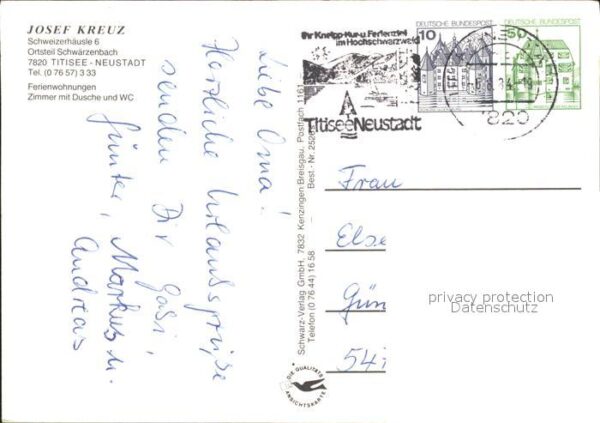 JOSEF KREUZ
Schweizerhäusle 6
Ortsteil Schwärzenbach
7820 TITISEE - NEUSTADT
Tel. (0 76 57) 3 33
Ferienwohnungen
Zimmer mit Dusche und WC
Liebe Oma!
Herzliche Urlaubsgrüße
senden Dir Gabi,
Günter, Markus u.
Andreas
Schwarz-Verlag GmbH, 7832 Kenzingen Breisgau, Postfach 1161
Telefon (0 76 44) 16 58
Best.-Nr.
DIE QUALITÄTS
ANSICHTSKARTE
Ihr Kneipp-Kur-u. Ferienziel
im Hochschwarzwald
Titisee Neustadt
DEUTSCHE BUNDESPOST
10
DEUTSCHE BUNDESPOST
50
7820
Frau
Else
Gün
54
privacy protection
Datenschutz